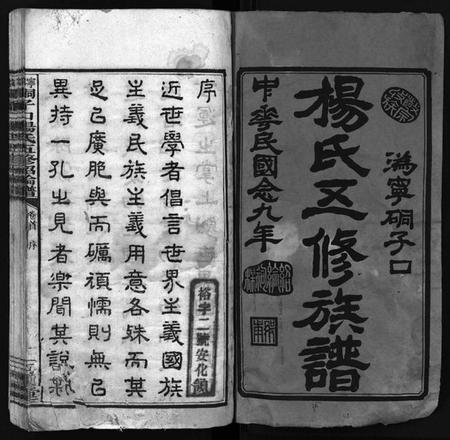 溈寧硐子口
楊氏五修族譜
中華民國念九年
序
近世學者倡言世界主義國族
主義民族主義用意各殊而其
足己廣胞與而礪頑懦則無二
異持一孔之見者樂聞其說
裕字二號安化
硐子口楊氏五修族譜
卷首 序